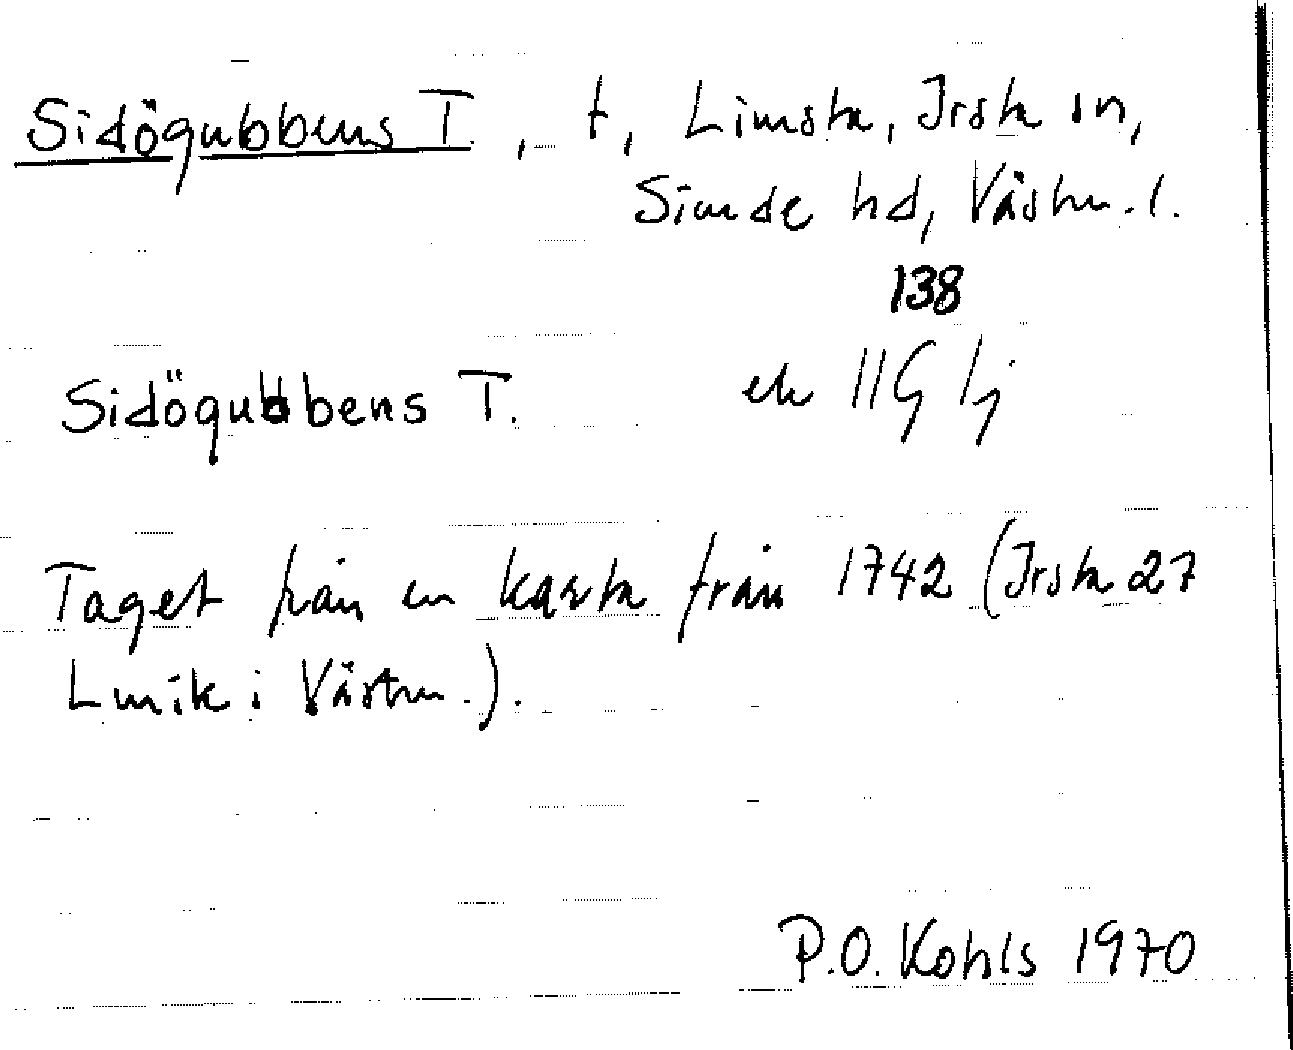 Sidögubbens T., t, Limsta, Irsta sn,
Siende hd, Västm. l.
138
Sidögubbens T. ek 11G 1j
Taget från en karta från 1742 (Irsta 27
Lmk i Västm.).
P.O. Kohls 1970